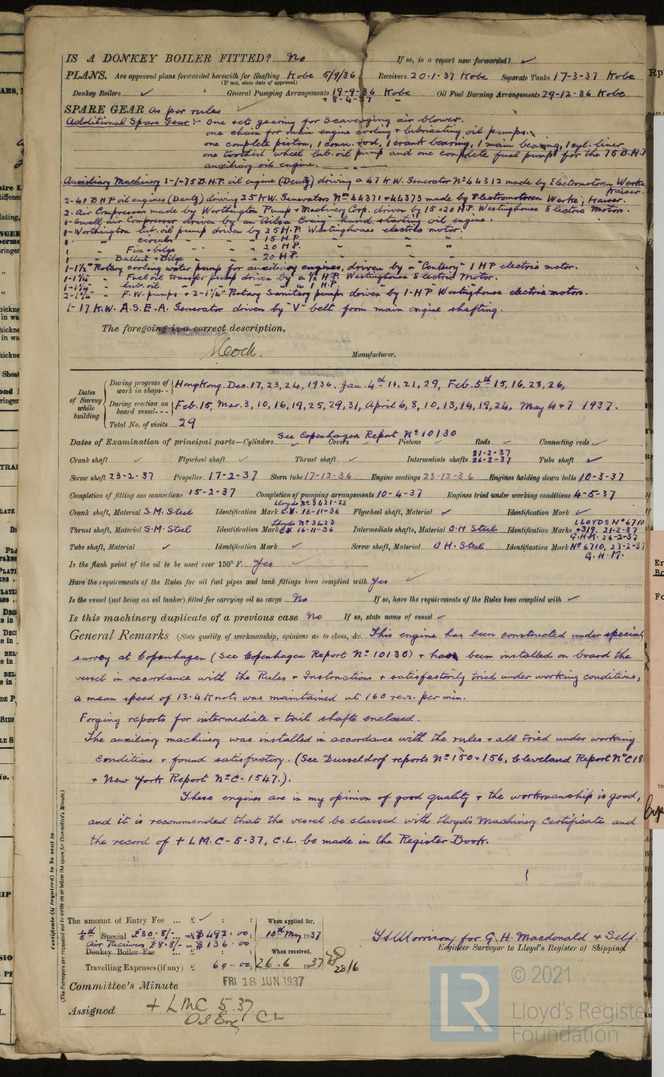 IS A DONKEY BOILER FITTED? No If so, is a report now forwarded? ✓
PLANS. Are approved plans forwarded herewith for Shafting Kobe 5/9/36 Receivers 20·1·37 Kobe Separate Tanks 17-3-37 Kobe
(If not, state date of approval)
Donkey Boilers ✓ General Pumping Arrangements 19-9-36 Kobe Oil Fuel Burning Arrangements 29-12-36 Kobe
+ 8-4-37 "
SPARE GEAR As per rules ✓
Additional Spare Gear :- One set gearing for scavenging air blower.
one chain for main engine cooling & lubricating oil pumps.
one complete piston, 1 conn. rod, 1 crank bearing, 1 main bearing, 1 cyl. liner
one toothed wheel lub. oil pump and one complete fuel pump for the 75 B.H.P.
auxiliary oil engine.
Auxiliary Machinery :- 1-75 B.H.P. oil engine (Deutz) driving a 47 K.W. Generator No 44312 made by Electromotoren Werke Kaiser.
2-41 B.H.P. oil engines (Deutz) driving 25 K.W. Generators No 44371 & 44373 made by Electromotoren Werke, Kaiser.
2-Air Compressors made by Worthington Pump & Machinery Corp. driven by 15 & 20 H.P. Westinghouse Electric Motors.
1-Small air Compressor driven by an hand starting oil engine.
1-Worthington lub. oil pump driven by 25 H.P. Westinghouse electric motor.
1- " Circul'g " " " 15 H.P. " " "
1- " Fire & bilge " " " 20 H.P. " " "
1- " Ballast & Bilge " " " 20 H.P. " " "
1-1½" Rotary cooling water pump for auxiliary engines, driven by a "Century" 1 HP electric motor.
1-1¼" " Fuel oil transfer pump driven by a ½ H.P. Westinghouse Electric Motor.
1-1¼" " lub. oil " " " " 1 H.P. " " "
2-1½" " F.W. pumps & 2-1¼" Rotary Sanitary pumps driven by 1-H.P. Westinghouse electric motors.
1-17 K.W. A.S.E.A. Generator driven by "V" belt from main engine shafting.
The foregoing is a correct description,
Manufacturer.
Dates of Survey while building
During progress of work in shops-- Hongkong. Dec. 17, 23, 24, 1936. Jan. 4th, 11, 21, 29, Feb. 5th, 15, 16, 23, 26,
During erection on board vessel--- Feb. 15, Mar. 3, 10, 16, 19, 25, 29, 31, April 6, 8, 10, 13, 14, 19, 24, May 4 & 7 1937.
Total No. of visits 29
Dates of Examination of principal parts—Cylinders See Copenhagen Report No 10130 Covers Pistons Rods ✓ Connecting rods ✓
Crank shaft ✓ Flywheel shaft ✓ Thrust shaft ✓ Intermediate shafts 21-2-37 26-2-37 Tube shaft ✓
Screw shaft 23-2-37 Propeller 17-2-37 Stern tube 17-12-36 Engine seatings 23-12-36 Engines holding down bolts 10-3-37
Completion of fitting sea connections 15-2-37 Completion of pumping arrangements 10-4-37 Engines tried under working conditions 4-5-37
Crank shaft, Material S.M. Steel Identification Mark Lloyds No 3621-22 16-11-36 Flywheel shaft, Material ✓ Identification Mark ✓
Thrust shaft, Material S.M. Steel Identification Mark Lloyds No 3623 16-11-36 Intermediate shafts, Material O.H Steel Identification Marks LLOYDS No 6710 21-2-37 G.H.M. 26-2-37
Tube shaft, Material ✓ Identification Mark ✓ Screw shaft, Material O.H. Steel Identification Mark No 6710, 23-2-37 G.H.M.
Is the flash point of the oil to be used over 150° F. Yes
Have the requirements of the Rules for oil fuel pipes and tank fittings been complied with Yes
Is the vessel (not being an oil tanker) fitted for carrying oil as cargo No If so, have the requirements of the Rules been complied with ✓
Is this machinery duplicate of a previous case No If so, state name of vessel ✓
General Remarks (State quality of workmanship, opinions as to class, &c. This engine has been constructed under special
survey at Copenhagen (See Copenhagen Report No 10130) & has been installed on board the
vessel in accordance with the Rules & Instructions & satisfactorily tried under working conditions,
a mean speed of 13.4 Knots was maintained at 160 revs. per min.
Forging reports for intermediate & tail shafts enclosed.
The auxiliary machinery was installed in accordance with the rules & all tried under working
conditions & found satisfactory. (See Dusseldorf reports No 150 & 156, Cleveland Report No C18
& New York Report No C-1547.).
These engines are in my opinion of good quality & the workmanship is good,
and it is recommended that the vessel be classed with Lloyd's Machinery Certificate and
the record of + L.M.C-5-37, C.L. be made in the Register Book.
Certificate (if required) to be sent to
(The Surveyors are requested not to write on or below the space for Committee's Minute.)
The amount of Entry Fee ... £ ✓ : When applied for,
Special £30.8/- $492.00 10th May 1937
Air Receivers £8.8/- $136.00
Donkey Boiler Fee ... £ When received,
Travelling Expenses (if any) £ 60.00 26-6 1937 28/6
for G. H. Macdonald & Self.
Engineer Surveyor to Lloyd's Register of Shipping.
Committee's Minute FRI 18 JUN 1937
Assigned + LMC 5.37
Oil Eng. CL
© 2021
LR
Lloyd's Register
Foundation